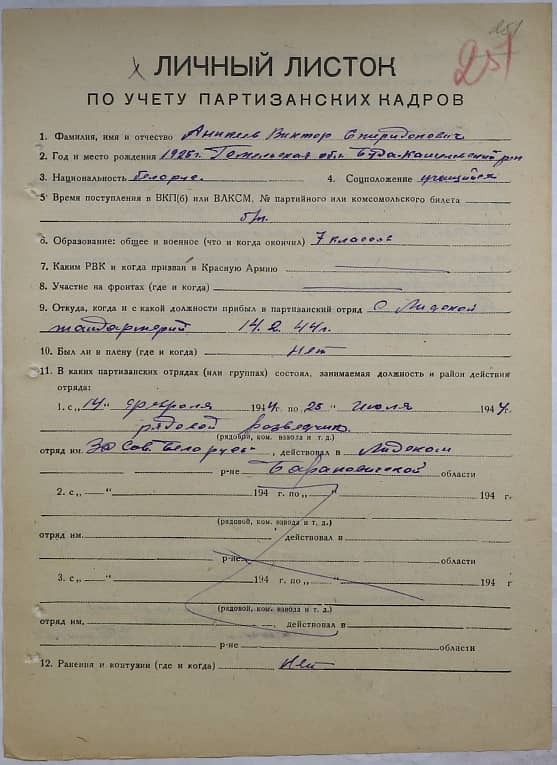 251
257
ЛИЧНЫЙ ЛИСТОК
ПО УЧЕТУ ПАРТИЗАНСКИХ КАДРОВ
1. Фамилия, имя и отчество Виктор Спиридонович
2. Год и место рождения 1926г. Гомельская обл. Буда-Кошелевский р-н
3. Национальность белорус. 4. Соцположение учащийся
5 Время поступления в ВКП(б) или ВЛКСМ, № партийного или комсомольского билета
б/п.
6. Образование: общее и военное (что и когда окончил) 7 классов
7. Каким РВК и когда призван в Красную Армию
8. Участие на фронтах (где и когда)
9. Откуда, когда и с какой должности прибыл в партизанский отряд С Лидской
жандармерий 14.2.44г.
10. Был ли в плену (где и когда) Нет
11. В каких партизанских отрядах (или группах) состоял, занимаемая должность и район действия
отряда:
1. с „14" февраля 1944г. по „25" июля 1944г.
рядовой разведчик.
(рядовой, ком. взвода и т. д.)
отряд им. За Сов. Беларусь, действовал в Лидском
р-не Барановичской области
2. с „ " 194 г. по „ " 194 г.
(рядовой, ком. взвода и т. д.)
отряд им. действовал в
р-не области
3. с „ " 194 г. по „ " 194 г
(рядовой, ком. взвода и т. д.)
отряд им. действовал в
р-не области
12. Ранения и контузии (где и когда) Нет